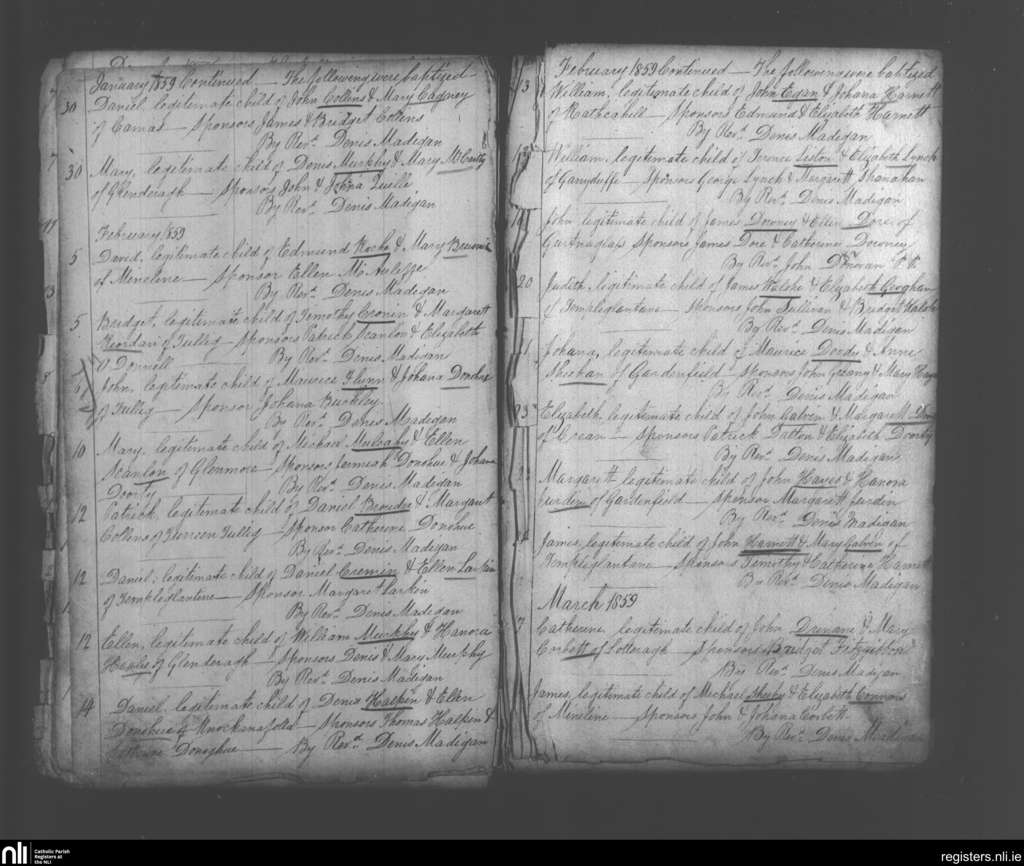 January 1859 Continued — The following were baptised —
30 Daniel legitimate child of John Collins & Mary Cagney
of Camas — Sponsors James & Bridget Collins
By Revd. Denis Madigan
30 Mary, legitimate child of Denis Murphy & Mary
of Glenderagh — Sponsors John &
By Revd. Denis Madigan
February 1859
5 David, legitimate child of Edmund Roche & Mary
of — Sponsor Ellen McAuliffe
By Revd. Denis Madigan
5 Bridget, legitimate child of Timothy Cronin & Margaret
Reordan of Tullig — Sponsors Patrick Scanlon & Elizabeth
O'Donnell — By Revd. Denis Madigan
John, legitimate child of Maurice Flynn & Johana
of Tullig — Sponsor Johana Buckley
By Revd. Denis Madigan
10 Mary, legitimate child of Michael Mulcahy & Ellen
Scanlon of Glenmore — Sponsors Jermiah Donohue & Johana
Doody — By Revd. Denis Madigan
12 Patrick, legitimate child of Daniel Brouder & Margaret
Collins of Tullig — Sponsor Catherine Donohue
By Revd. Denis Madigan
12 Daniel, legitimate child of Daniel & Ellen Larkin
of Templeglantine — Sponsor Margaret Larkin
By Revd. Denis Madigan
12 Ellen, legitimate child of William Murphy & Hanora
of Glenderagh — Sponsors Denis & Mary Murphy
By Revd. Denis Madigan
14 Daniel, legitimate child of Denis Halpin & Ellen
Donohue of — Sponsors Thomas Halpin &
Donoghue — By Revd. Denis Madigan
February 1859 Continued — The following were baptised
William, legitimate child of John Egan & Johana Harnett
of Rathcahill — Sponsors Edmund & Elizabeth Harnett
By Revd. Denis Madigan
William, legitimate child of Terence Liston & Elizabeth Lynch
of Garryduffe — Sponsors George Lynch & Margarett Shanahan
By Revd. Denis Madigan
John legitimate child of James Downey & Ellen Dore of
Gortnaglass Sponsors James Dore & Catherine Downey
By Revd. John Donovan
20 Judith, legitimate child of James Walshe & Elizabeth Geoghan
of Templeglantane — Sponsors John Sullivan & Bridget Walshe
By Revd. Denis Madigan
Johana, legitimate child of Maurice & Anne
Sheehan of Gardenfield — Sponsors John & Mary
By Revd. Denis Madigan
Elizabeth, legitimate child of John Galvin & Margarett
of — Sponsors Patrick Dalton & Elizabeth Doody
By Revd. Denis Madigan
Margarett legitimate child of John Hayes & Hanora
of Gardenfield — Sponsor Margarett
By Revd. Denis Madigan
James, legitimate child of John Harnett & Mary Galvin of
Templeglantane — Sponsors Timothy & Catherine Harnett
By Revd. Denis Madigan
March 1859
7 Catherine, legitimate child of John Drinane & Mary
Corbett of — Sponsors Bridget Fitzgibbon
By Revd. Denis Madigan
James, legitimate child of Michael Sheehy & Elizabeth Connors
of — Sponsors John & Johana Corbett
By Revd. Denis Madigan
nli
Catholic Parish
Registers at
the NLI
registers.nli.ie